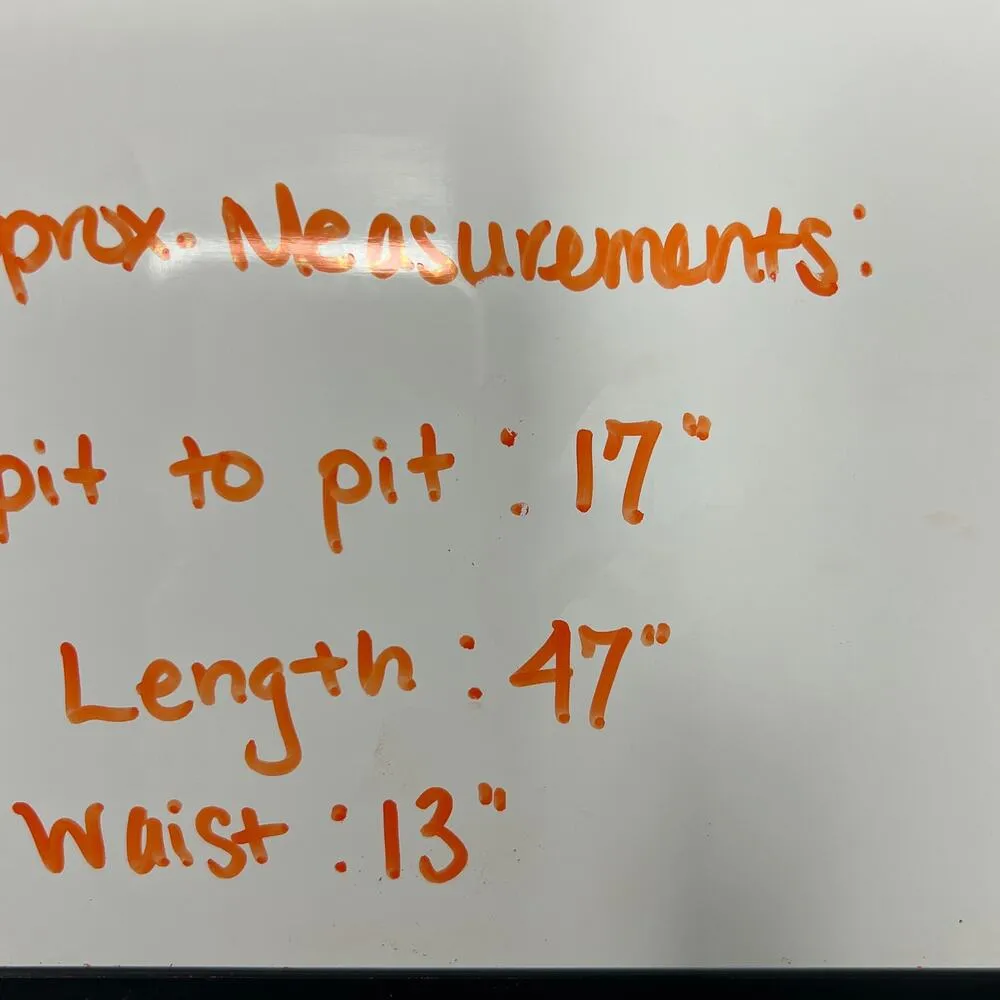 prox. Measurements:
pit to pit : 17"
Length : 47"
Waist : 13"